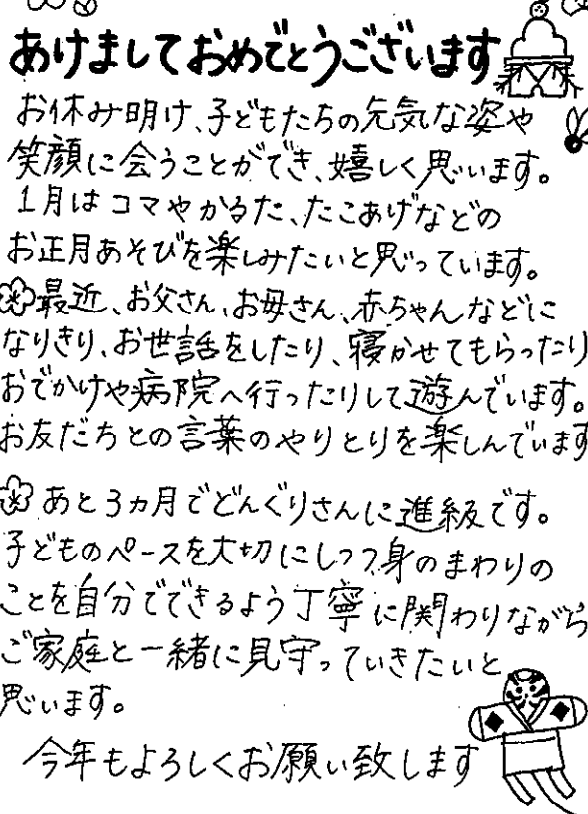 あけましておめでとうございます
お休み明け、子どもたちの元気な姿や
笑顔に会うことができ、嬉しく思います。
1月はコマやかるた、たこあげなどの
お正月あそびを楽しみたいと思っています。
最近、お父さん、お母さん、赤ちゃんなどに
なりきり、お世話をしたり、寝かせてもらったり
おでかけや病院へ行ったりして遊んでいます。
お友だちとの言葉のやりとりを楽しんでいます
あと3ヵ月でどんぐりさんに進級です。
子どものペースを大切にしつつ身のまわりの
ことを自分でできるよう丁寧に関わりながら
ご家庭と一緒に見守っていきたいと
思います。
今年もよろしくお願い致します